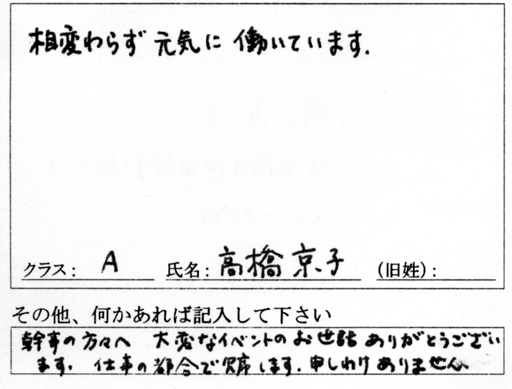 相変わらず元気に働いています.
クラス: A 氏名: 高橋京子 (旧姓):
その他、何かあれば記入して下さい
幹事の方々へ 大変なイベントのお世話ありがとうござい
ます. 仕事の都合で欠席します. 申しわけありません